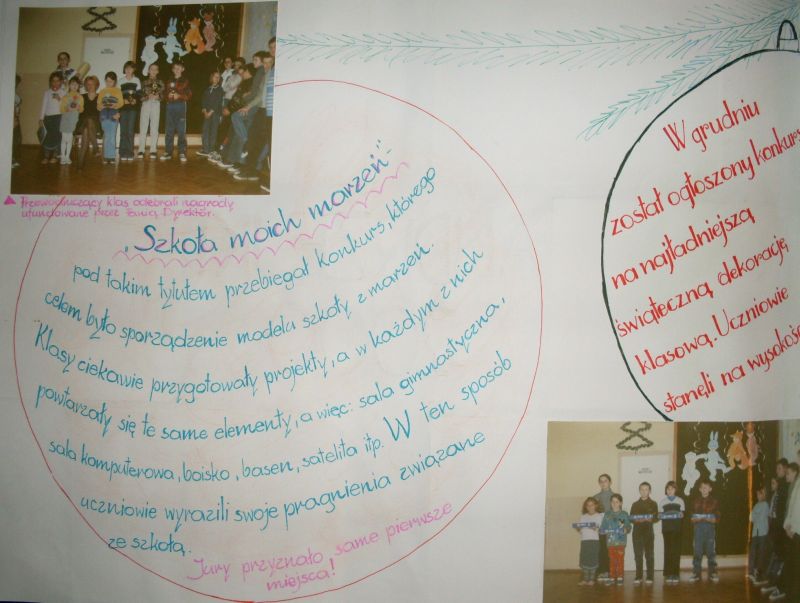 ▲ Przewodniczący klas odebrali nagrody
ufundowane przez Panią Dyrektor.
"Szkoła moich marzeń" -
pod takim tytułem przebiegał konkurs, którego
celem było sporządzenie modelu szkoły z marzeń.
Klasy ciekawie przygotowały projekty, a w każdym z nich
powtarzały się te same elementy, a więc: sala gimnastyczna,
sala komputerowa, boisko, basen, satelita itp. W ten sposób
uczniowie wyrazili swoje pragnienia związane
ze szkołą.
Jury przyznało same pierwsze
miejsca!
W grudniu
został ogłoszony konkurs
na najładniejszą
świąteczną dekorację
klasową. Uczniowie
stanęli na wysokości